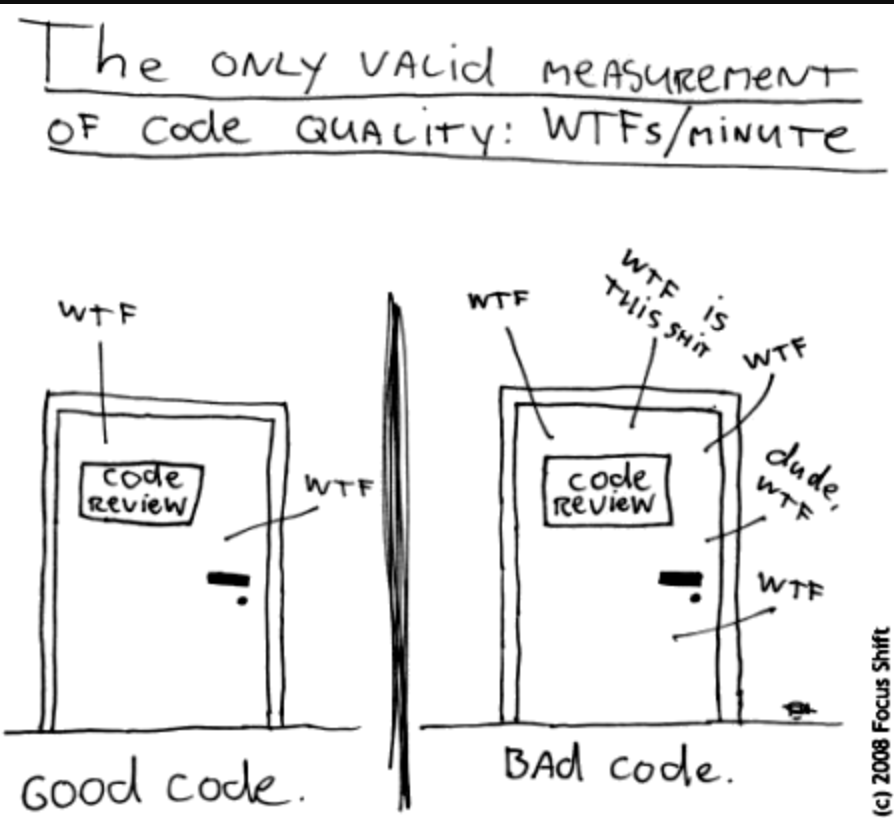 The ONLY VALid MEASUREMENT
OF Code QUALITY: WTFs/MINUTE
WTF
code
REVIEW
WTF
Good code.
WTF
WTF is
THiS SHiT
WTF
code
REVIEW
dude,
WTF
WTF
BAd code.
(c) 2008 Focus Shift